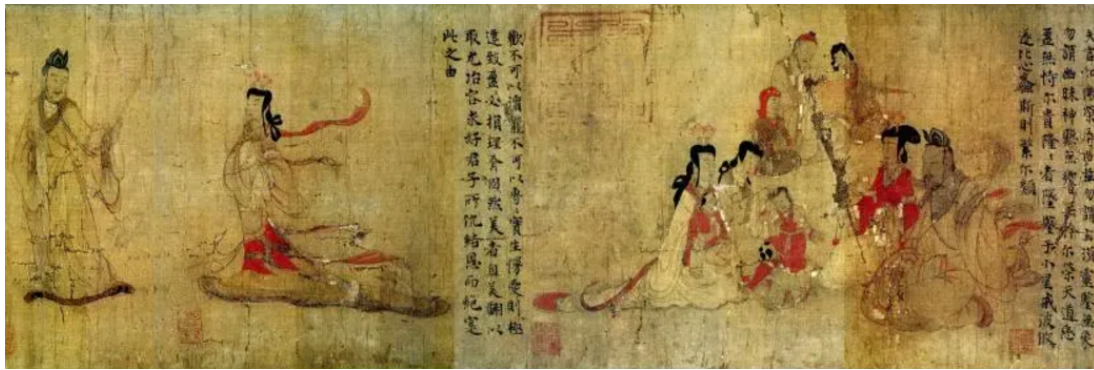 夫言如微榮辱由茲勿謂玄漠靈鑒無象
勿謂幽昧神聽無響無矜尔榮天道惡
盈無恃尔貴隆〻者墜鑒于小星戒彼攸
遂比心螽斯則繁尔類
歡不可以瀆寵不可以專〻實生慢愛則極
遷致盈必損理有固然美者自美翩以
取尤冶容求好君子所仇結恩而絕寔
此之由